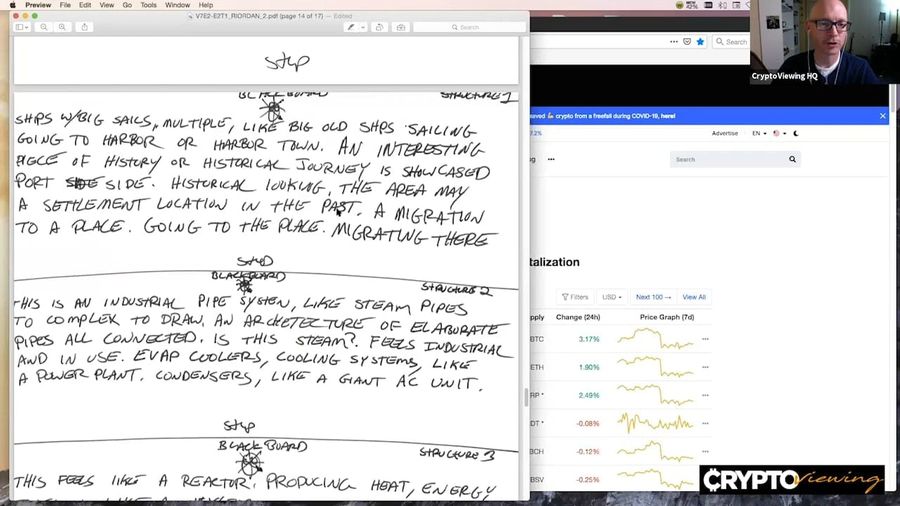 Preview File Edit View Go Tools Window Help
V7E2-E2T1_RIORDAN_2.pdf (page 14 of 17) — Edited
Search
STUP
BLACKBOARD STRUCTURE 1
SHIPS W/BIG SAILS, MULTIPLE, LIKE BIG OLD SHPS SAILING
GOING TO HARBOR OR HARBOR TOWN. AN INTERESTING
PIECE OF HISTORY OR HISTORICAL JOURNEY IS SHOWCASED
PORT SIDE. HISTORICAL LOOKING, THE AREA MAY
A SETTLEMENT LOCATION IN THE PAST. A MIGRATION
TO A PLACE. GOING TO THE PLACE. MIGRATING THERE
BLACKBOARD
STRUCTURE 2
THIS IS AN INDUSTRIAL PIPE SYSTEN, LIKE STEAM PIPES
TO COMPLEX TO DRAW. AN ARCHETECTURE OF ELABORATE
PIPES ALL CONNECTED. IS THIS STEAM?. FEELS INDUSTRIAL
AND IN USE. EVAP COOLERS, COOLING SYSTEMS, LIKE
A POWER PLANT. CONDENSERS, LIKE A GIANT AC UNIT.
STUP
BLACKBOARD
STRUCTURE 3
THIS FEELS LIKE A REACTOR. PRODUCING HEAT, ENERGY,
CryptoViewing HQ
Search
aved crypto from a freefall during COVID-19, here!
7.2% Advertise EN USD
Search
talization
Filters USD Next 100 → View All
pply Change (24h) Price Graph (7d)
BTC 3.17%
ETH 1.90%
RP * 2.49%
DT * -0.08%
BCH -0.12%
BSV -0.25%
CRYPTO Viewing